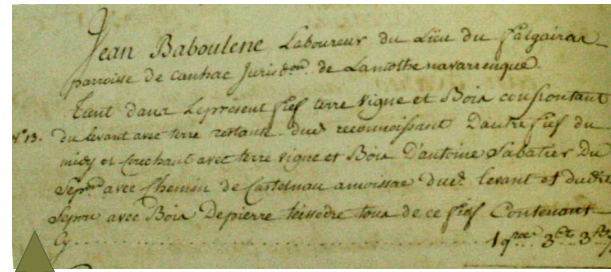 Jean Baboulene Laboureur du Lieu du falgairas
parroisse de Jurisdon. de Lamothe navarrenque
Tient dans Lepresent fief terre vigne et Bois confrontant
N° 13. du levant avec terre restante dud. reconnoissant D'autre fief du
midy et Couchant avec terre vigne et Bois D'antoine Sabatier Du
avec Chemin de Castelnau amoissac dud. levant et dudit
avec Bois Depierre teissedre tous de ce fief Contenant
Cy